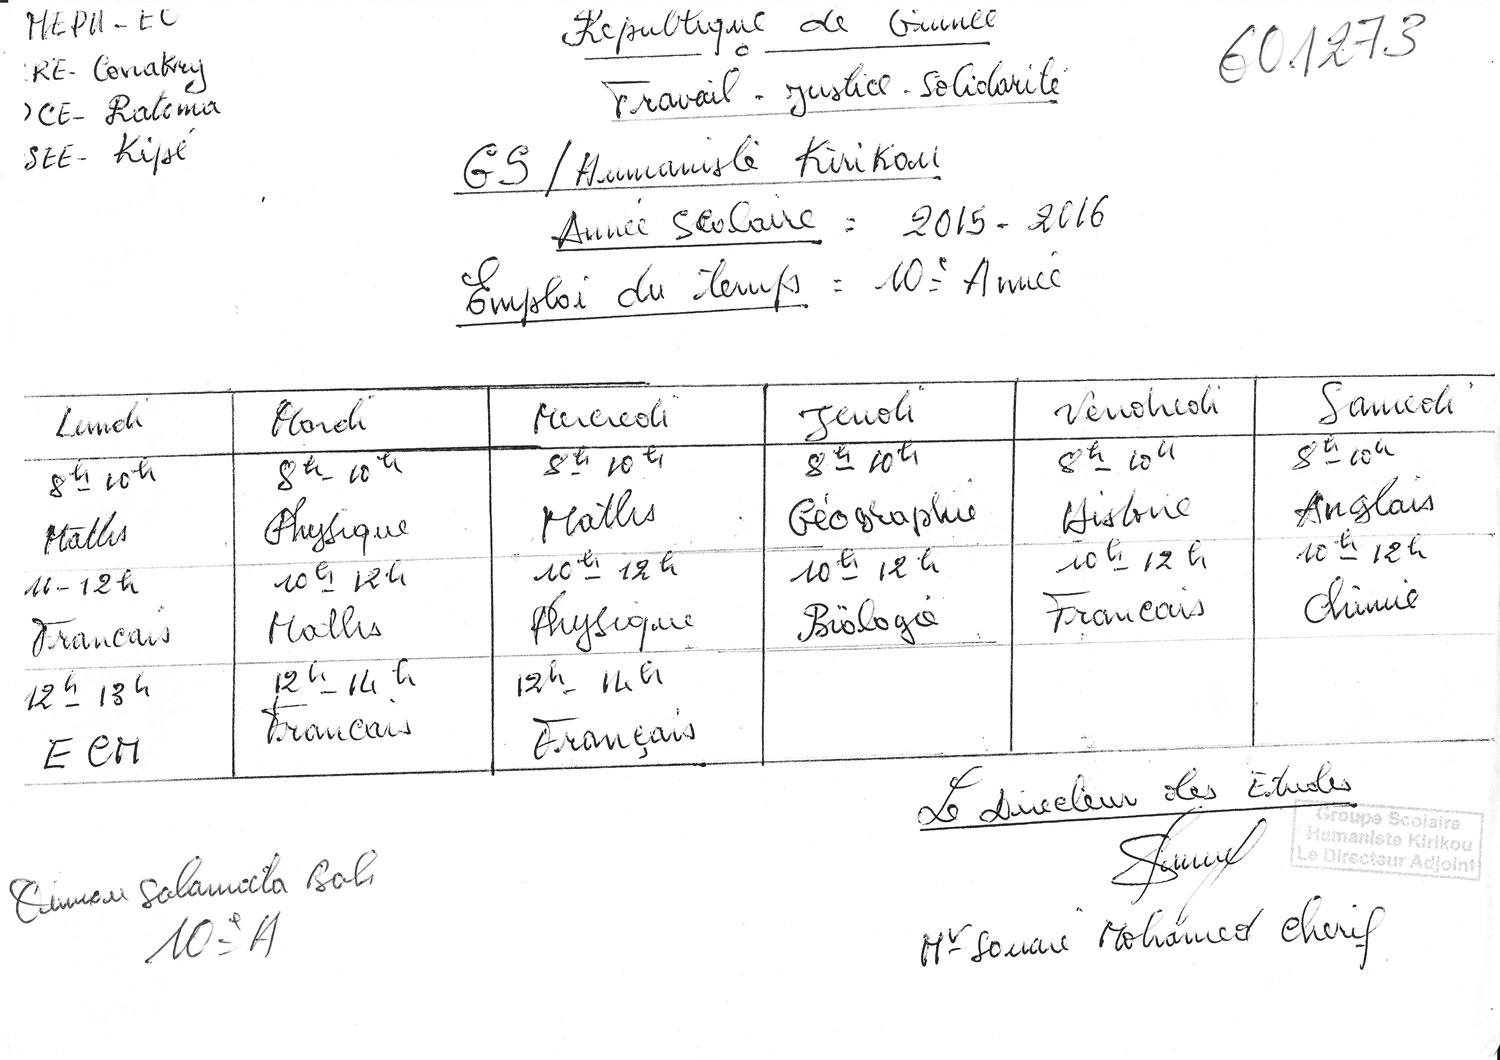 MEPU - EC
République de Guinée
601273
IRE- Conakry
Travail - Justice - Solidarité
DCE- Ratoma
SEE- Kipé
GS/Humaniste Kirikou
Année Scolaire : 2015 - 2016
Emploi du temps : 10è Année
Lundi Mardi Mercredi Jeudi Vendredi Samedi
8h-10h 8h-10h 8h-10h 8h-10h 8h-10h 8h-10h
Maths Physique Maths Géographie Histoire Anglais
11-12h 10h-12h 10h-12h 10h-12h 10h-12h 10h-12h
Francais Maths Physique Biologie Francais Chimie
12h-13h 12h-14h 12h-14h
E CM Francais Français
Le Directeur des Etudes
Groupe Scolaire
Humaniste Kirikou
Le Directeur Adjoint
Salamata Bah
10è A
Mr Souaré Mohamed Cherif